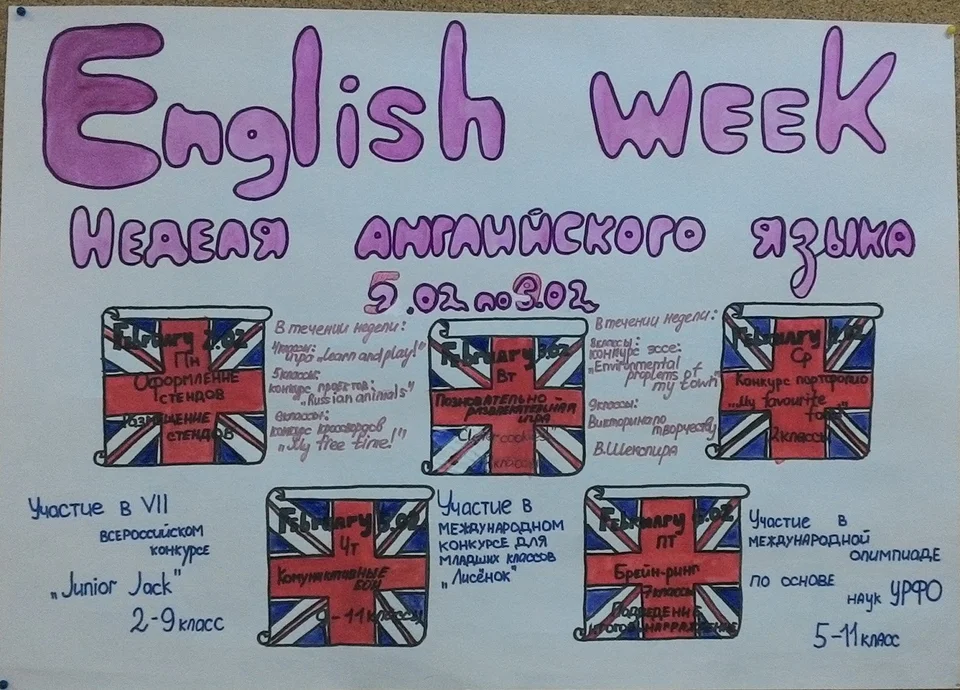 English week
Неделя английского языка
5.02 по 9.02
February 2.02
Пн
Оформление
стендов
Размещение
стендов
В течении недели:
4классы:
игра „Learn and play!"
5классы:
конкурс проектов:
„Russian animals"
6классы:
конкурс кроссвордов
„My free time!"
February
Вт
Позновательно-
развлекательная
игра
Clever cookies
классы
В течении недели:
8классы:
конкурс эссе:
„Environmental
proplems of
my town"
9классы:
Викторина по
творчеству
В.Шекспира
February
Ср
Конкурс портфолио
„My favourite
2классы
Участие в VII
всероссийском
конкурсе
„Junior Jack"
2-9 класс
February
Чт
Комуникативные
бои
-11классы
Участие в
международном
конкурсе для
младших классов
„Лисёнок"
February
Пт
Брейн-ринг
7классы
Подведение
итогов, нарраждение
Участие в
международной
олимпиаде
по основе
наук УРФО
5-11класс